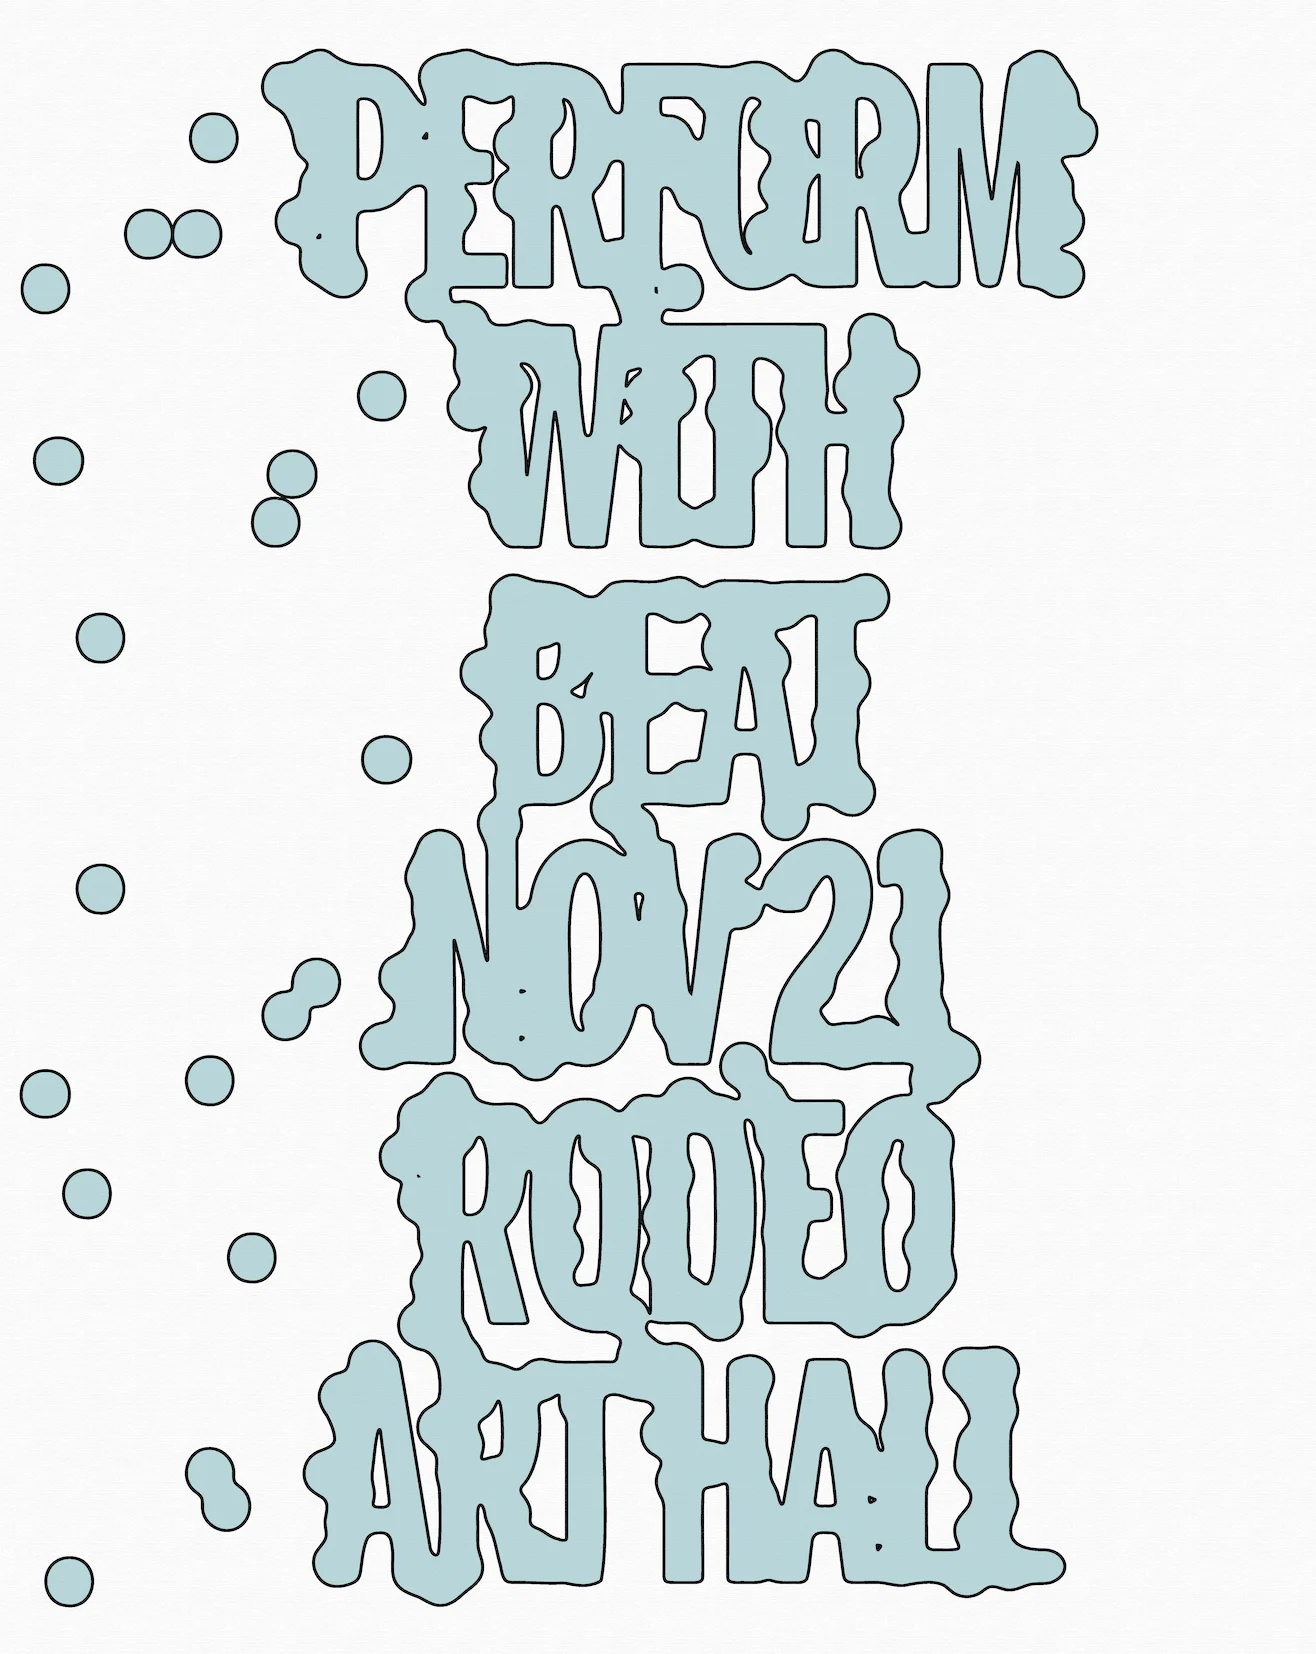 PERFORM
WITH
BEAT
NOV'21
RODEO
ART HALL